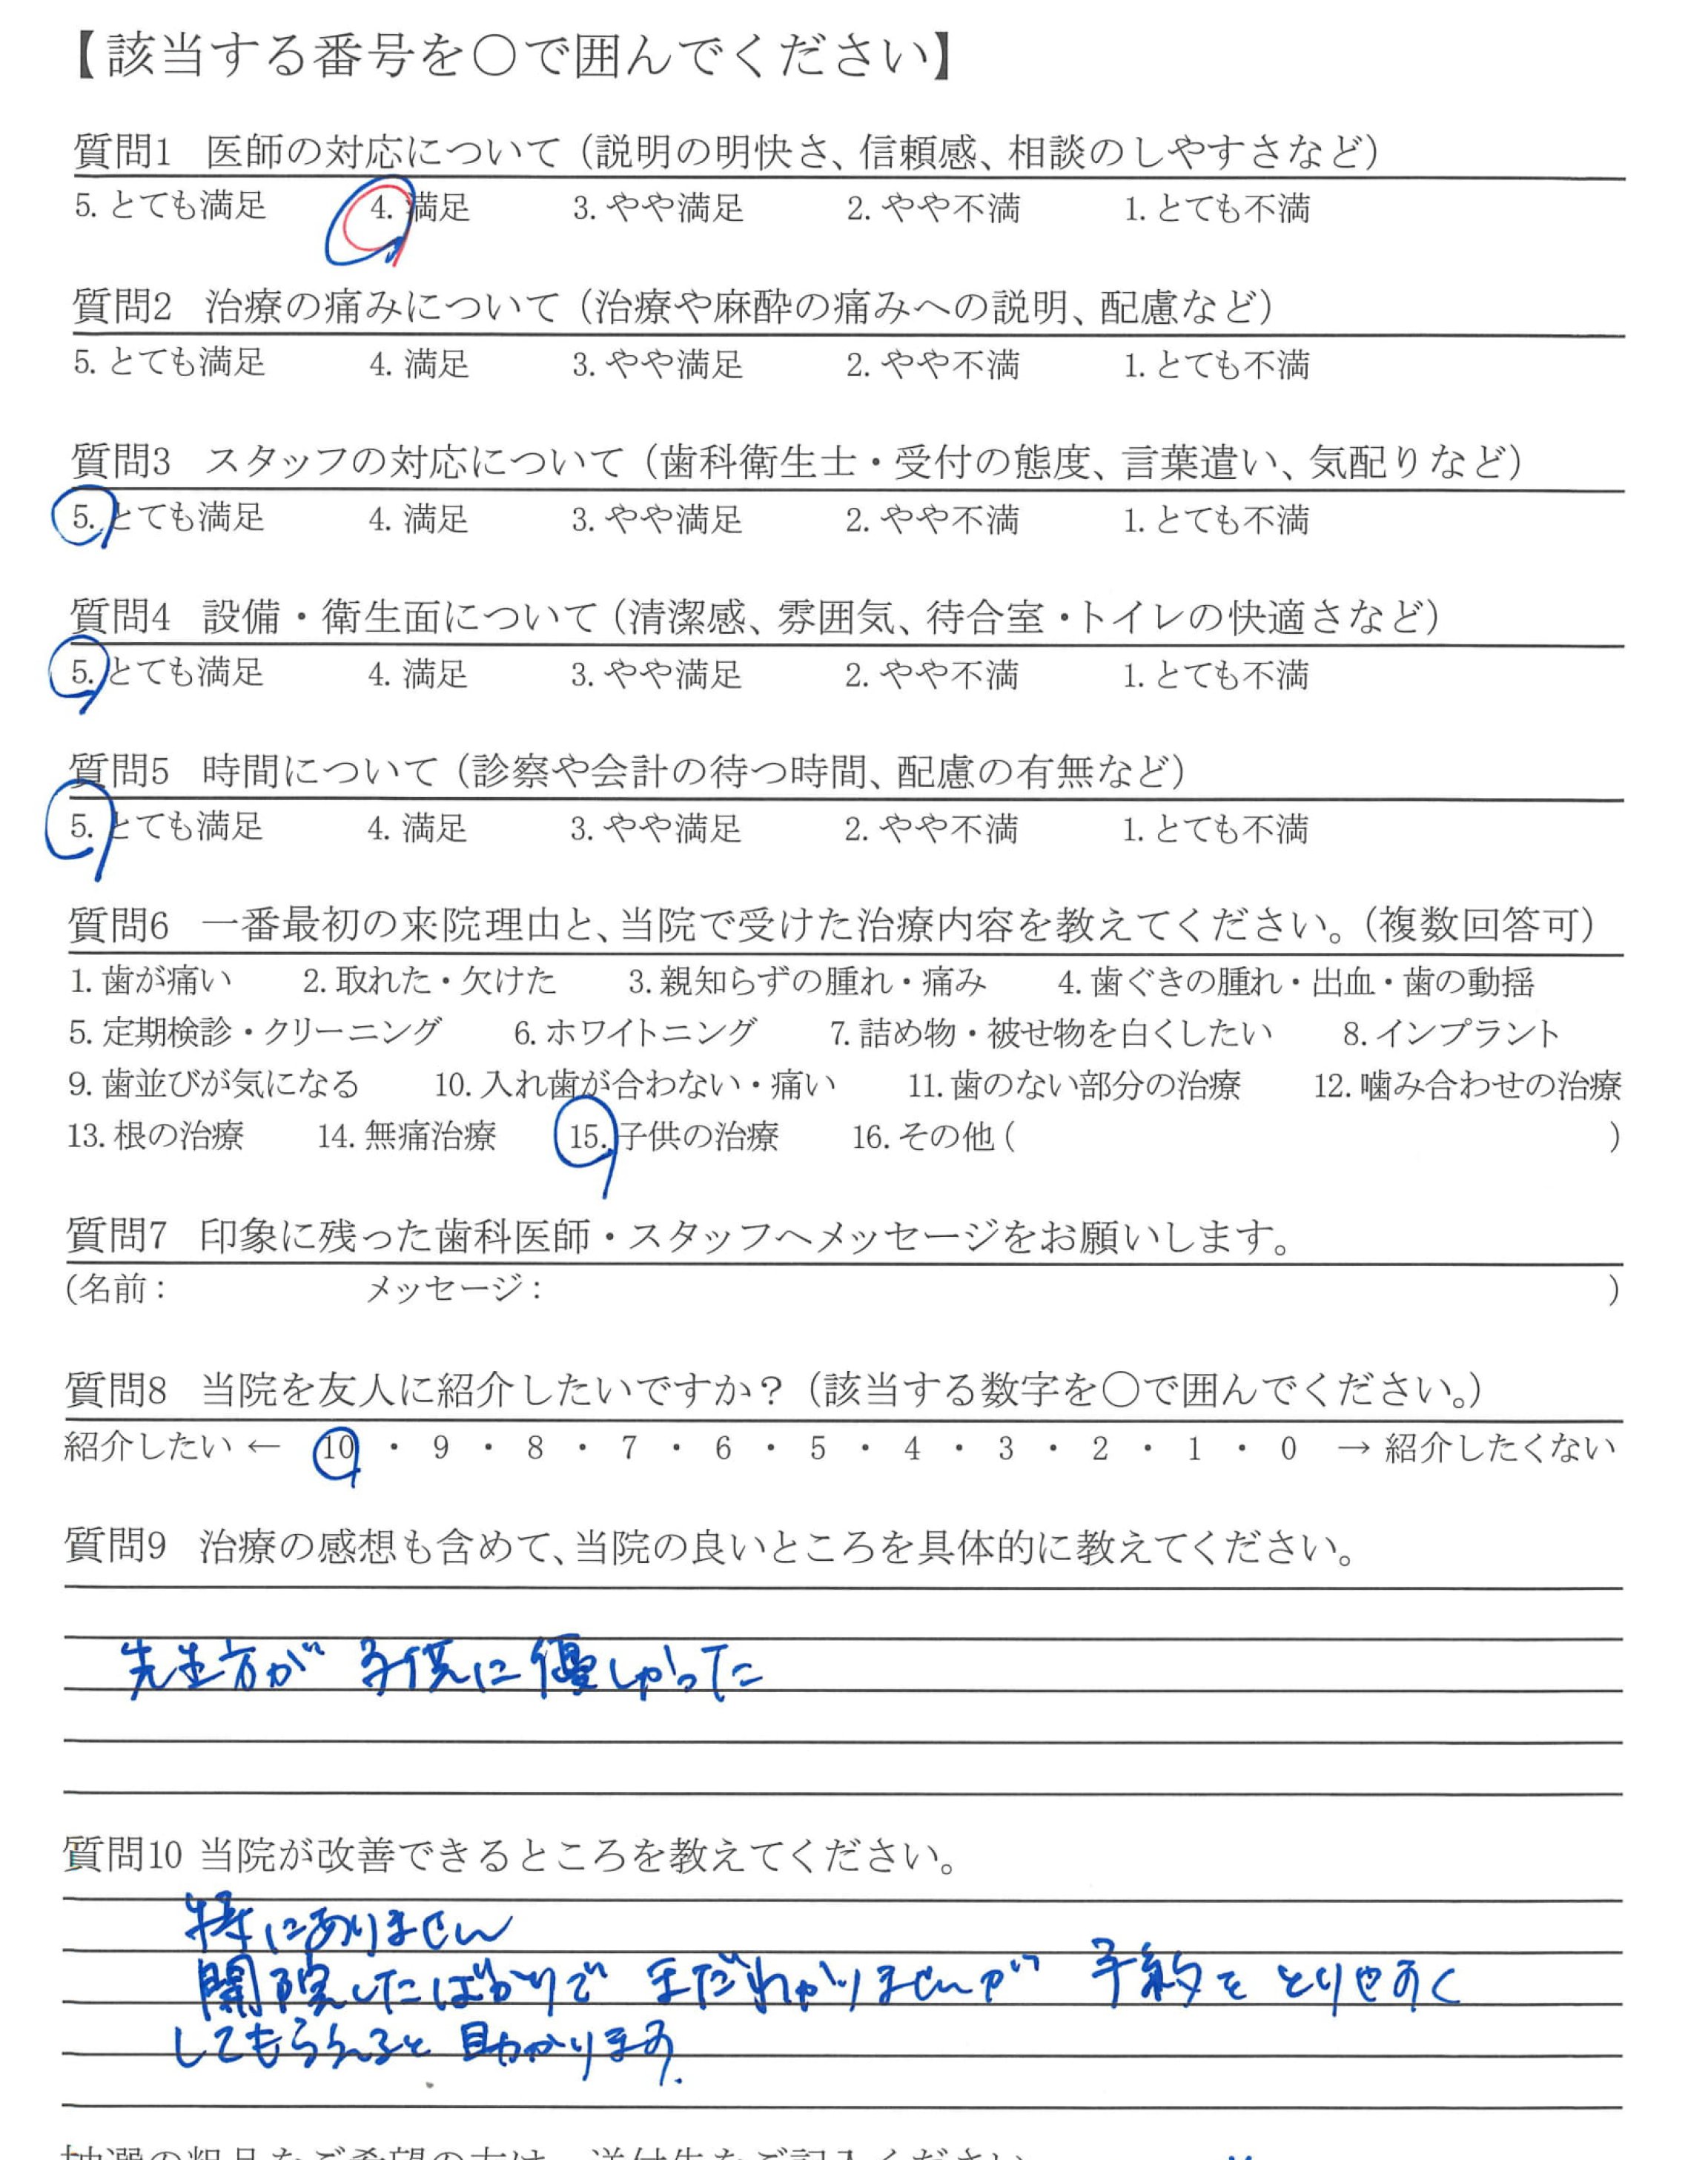 【該当する番号を○で囲んでください】
質問1 医師の対応について（説明の明快さ、信頼感、相談のしやすさなど）
5. とても満足 4. 満足 3. やや満足 2. やや不満 1. とても不満
質問2 治療の痛みについて（治療や麻酔の痛みへの説明、配慮など）
5. とても満足 4. 満足 3. やや満足 2. やや不満 1. とても不満
質問3 スタッフの対応について（歯科衛生士・受付の態度、言葉遣い、気配りなど）
5. とても満足 4. 満足 3. やや満足 2. やや不満 1. とても不満
質問4 設備・衛生面について（清潔感、雰囲気、待合室・トイレの快適さなど）
5. とても満足 4. 満足 3. やや満足 2. やや不満 1. とても不満
質問5 時間について（診察や会計の待つ時間、配慮の有無など）
5. とても満足 4. 満足 3. やや満足 2. やや不満 1. とても不満
質問6 一番最初の来院理由と、当院で受けた治療内容を教えてください。（複数回答可）
1. 歯が痛い 2. 取れた・欠けた 3. 親知らずの腫れ・痛み 4. 歯ぐきの腫れ・出血・歯の動揺
5. 定期検診・クリーニング 6. ホワイトニング 7. 詰め物・被せ物を白くしたい 8. インプラント
9. 歯並びが気になる 10. 入れ歯が合わない・痛い 11. 歯のない部分の治療 12. 噛み合わせの治療
13. 根の治療 14. 無痛治療 15. 子供の治療 16. その他（ ）
質問7 印象に残った歯科医師・スタッフへメッセージをお願いします。
（名前： メッセージ： ）
質問8 当院を友人に紹介したいですか？（該当する数字を○で囲んでください。）
紹介したい ← 10 ・ 9 ・ 8 ・ 7 ・ 6 ・ 5 ・ 4 ・ 3 ・ 2 ・ 1 ・ 0 → 紹介したくない
質問9 治療の感想も含めて、当院の良いところを具体的に教えてください。
先生方が 子供に優しかった
質問10 当院が改善できるところを教えてください。
特にありません
開院したばかりで まだわかりませんが 予約を とりやすく
してもらえると 助かります.
抽選の粗品をご希望の方は、送付先をご記入ください